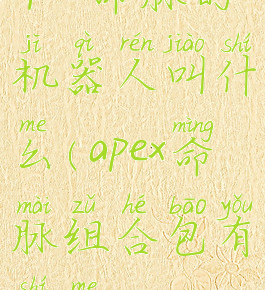 jī qì rén jiào shí
机器人叫什
me mìng
么(apex命
mài zǔ hé bāo yǒu
脉组合包有
shí me